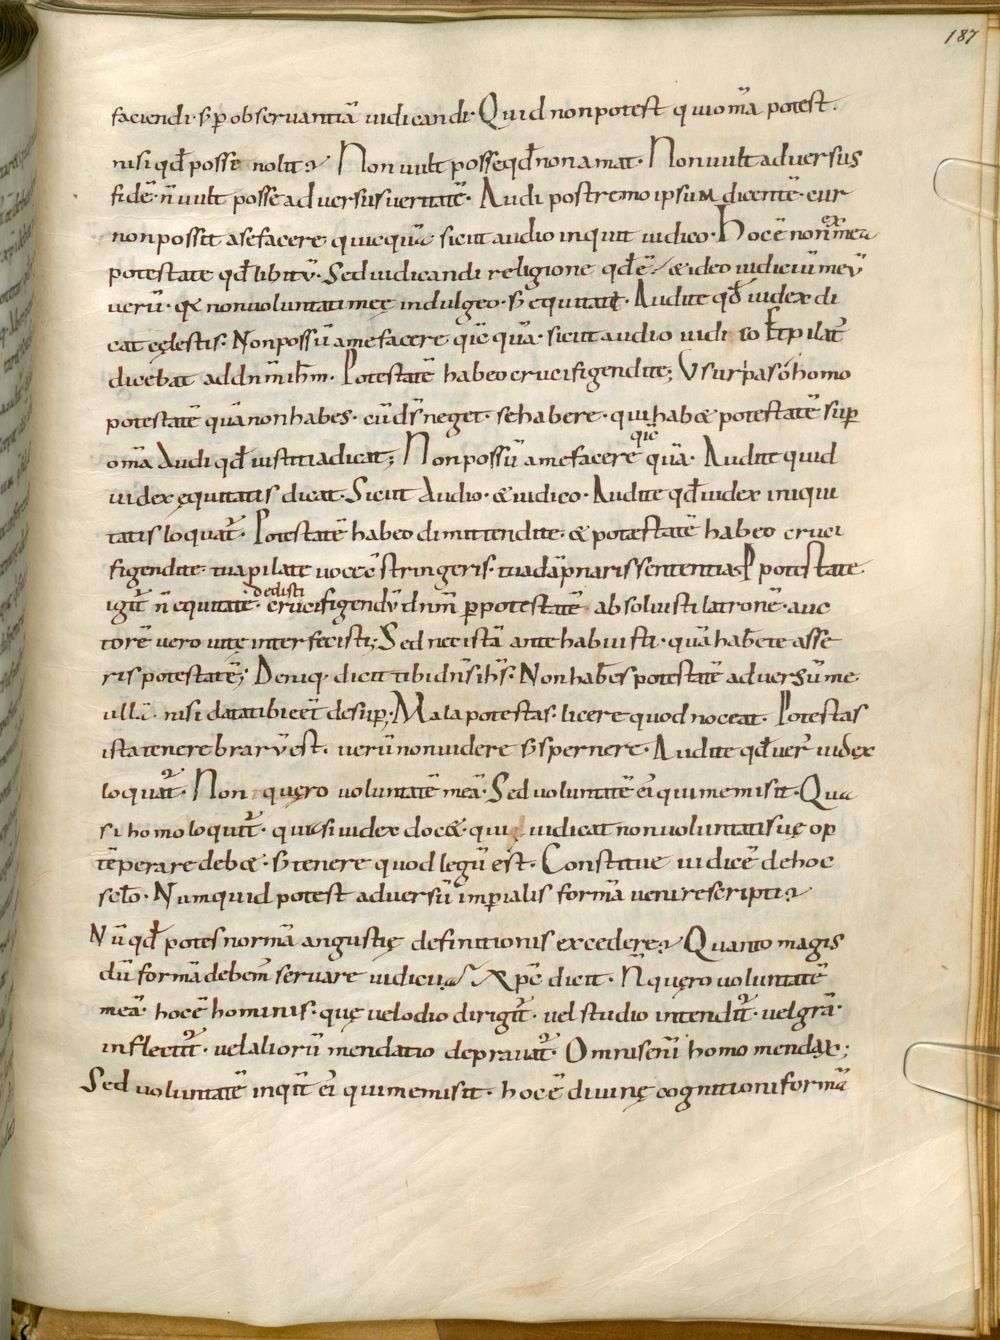 187
faciendi· s; p observantiā iudicandi· Quid non potest qui om̄a potest.
nisi qđ posse nolit? Non uult posse qđ non amat· Non uult adversus
fidē· n̄ uult posse adversus veritatē· Audi postremo ipsum dicentē· cur
non possit a se facere quicquā sicut audio inquit iudico· Hoc ē non ex n̄ mea
potestate qđ libitū· Sed iudicandi religione qđ ē / & ideo iudiciū meū
verū· q& non voluntati meę indulgeo· s; equitati· Audite qđ iudex di
cat cęlestis· Non possū a me facere qic quā· sicut audio iudico Et pilat᷒
dicebat ad dn̄m ih̄m· Potestatē habeo crucifigendi te; Usurpas ó homo
potestatē quā non habes· cū d̄s neget· se habere· qui hab& potestatē sup
om̄a Audi qđ iustitia dicat; Non possū a me facere qic quā· Audite quid
iudex ęquitatis dicat· Sicut Audio· & iudico· Audite qđ iudex iniqui
tatis loquat᷒· Potestatē habeo dimittendi te· & potestatē habeo cruci
figendi te· tua pilate voce c̄stringeris· tua dāpnaris sententia· P potestate
igit᷒ n̄ equitate· dedisti crucifigendū dn̄m p potestatē absoluisti latronē· auc
torē vero vitę interfecisti; Sed nec istā ante habuisti· quā habere te asse
ris potestatē; Deniq· dicit tibi dn̄s ih̄s· Non habes potestatē adversū me
ullā· nisi data tibi eēt desup; Mala potestas· licere quod noceat· Potestas
ista tenebrarū est· verū non videre s; spernere· Audite qđ ver᷒ iudex
loquat᷒· Non quęro voluntatē meā· Sed voluntatē ei᷒ qui me misit· Qua
si homo loquit᷒· quasi iudex doc&· qui iudicat non voluntati suę op
tēperare deb&· s; tenere quod legū est· Constitue iudicē de hoc
sclo· Numquid potest adversū imp̄ialis formā venire scripti?
Nū qđ potes normā angustię definitionis excedere? Quanto magis
dū formā debem᷒ servare iudicii? Xpc̄ dicit· N̄ quęro voluntatē
meā· hoc ē hominis· quę vel odio dirigit᷒· vel studio intendit᷒· vel gr̄a·
inflectit᷒· vel aliorū mendatio depravat᷒· Omnis eni᷒ homo mendax;
Sed voluntatē inqit ei᷒ qui me misit· hoc ē divinę cognitioni formā